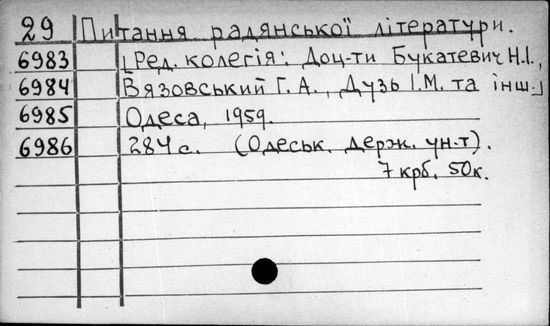 29 Питання радянської літератури.
6983 [Ред. колегія: Доц-ти Букатевич Н.І.,
6984 Вязовський Г.А., Дузь І.М. та інш.]
6985 Одеса, 1959.
6986 284 с. (Одеськ. держ. ун-т).
7 крб. 50к.